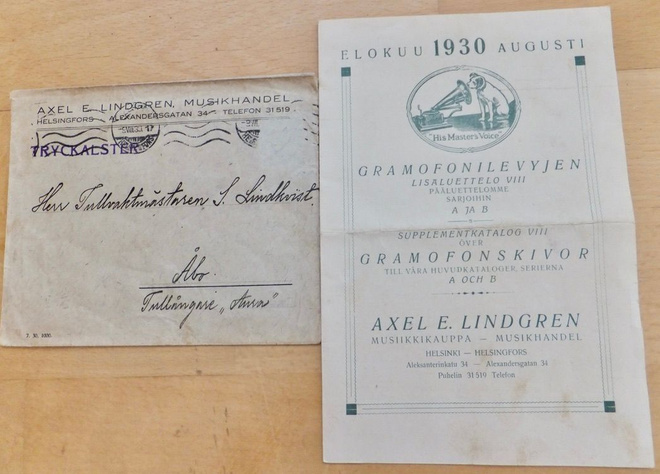 AXEL E. LINDGREN, MUSIKHANDEL
HELSINGFORS - ALEXANDERSGATAN 34 - TELEFON 31 519
TRYCKALSTER
Herr Tullvaktmästaren S. Lindkvist.
Åbo.
Tullångare „Aura"
ELOKUU 1930 AUGUSTI
"His Master's Voice"
GRAMOFONILEVYJEN
LISÄLUETTELO VIII
PÄÄLUETTELOMME
SARJOIHIN
A JA B
SUPPLEMENTKATALOG VIII
ÖVER
GRAMOFONSKIVOR
TILL VÅRA HUVUDKATALOGER, SERIERNA
A OCH B
AXEL E. LINDGREN
MUSIIKKIKAUPPA — MUSIKHANDEL
HELSINKI — HELSINGFORS
Aleksanterinkatu 34 — Alexandersgatan 34
Puhelin 31 519 Telefon